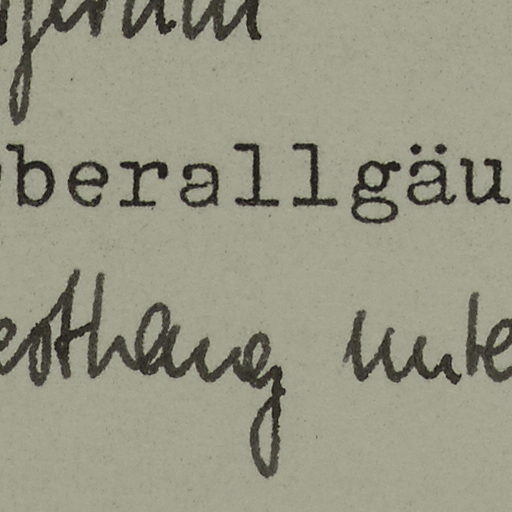 berallgäu
esthang unte